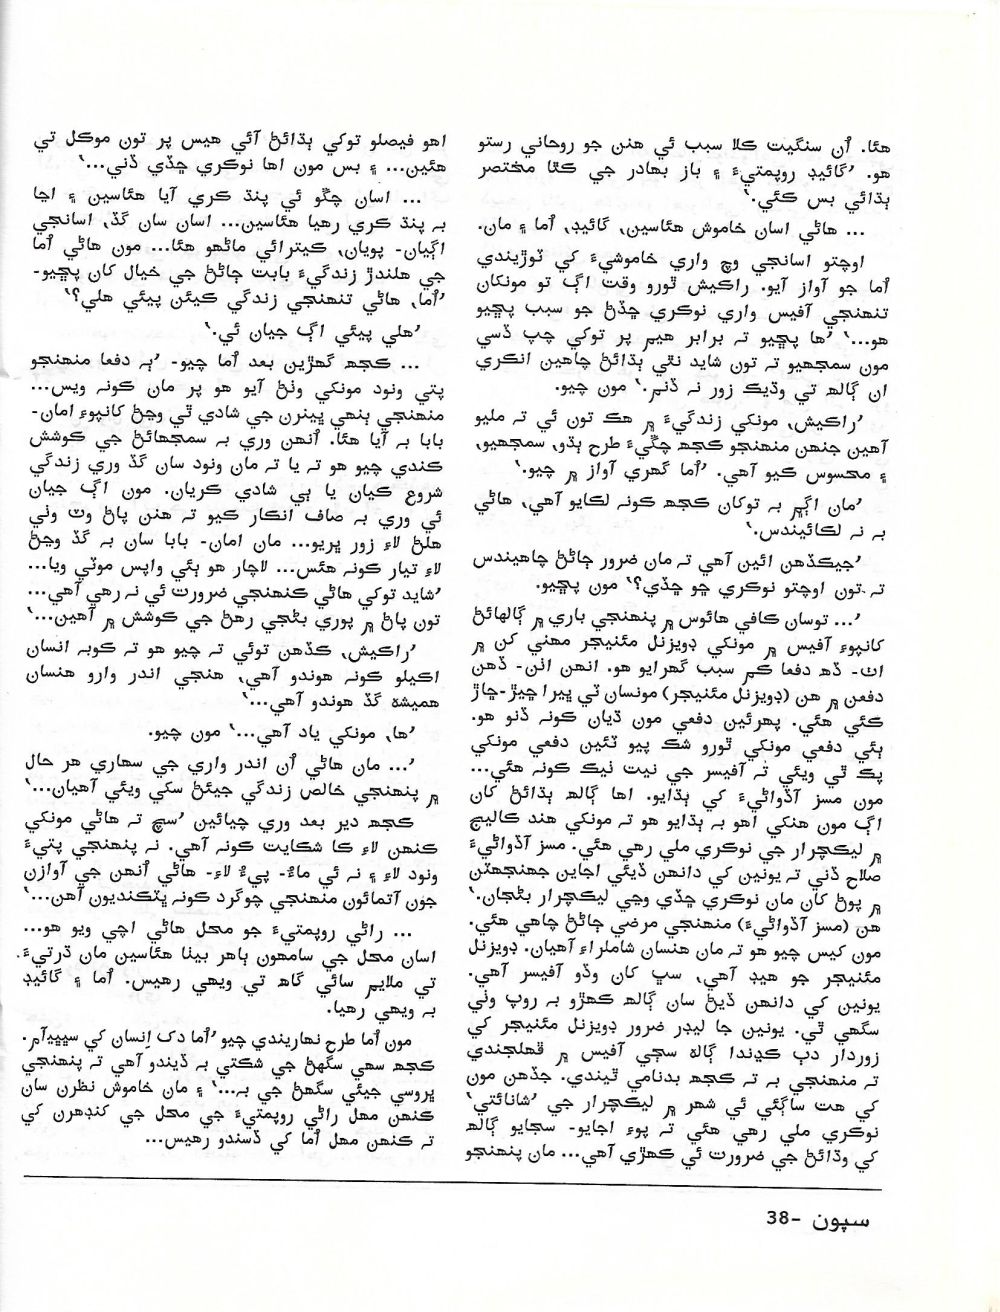 هئا. اُن سنگيت ڪلا سبب ئي هنن جو روحاني رستو
هو. ’گائيڊ روپمتيءَ ۽ باز بهادر جي ڪٿا مختصر
ٻڌائي بس ڪئي.‘
... هاڻي اسان خاموش هئاسين، گائيڊ، اُما ۽ مان.
اوچتو اسانجي وچ واري خاموشيءَ کي ٽوڙيندي
اُما جو آواز آيو. راڪيش ٿورو وقت اڳ تو مونکان
تنهنجي آفيس واري نوڪري ڇڏڻ جو سبب پڇيو
هو...‘ ’ها پڇيو تہ برابر هيم پر توکي چپ ڏسي
مون سمجهيو تہ تون شايد نٿي ٻڌائڻ چاهين انڪري
ان ڳالھ تي وڌيڪ زور نہ ڏنم.‘ مون چيو.
’راڪيش، مونکي زندگيءَ ۾ هڪ تون ئي تہ مليو
آهين جنهن منهنجو ڪجھ چڱيءَ طرح ٻڌو، سمجهيو،
۽ محسوس ڪيو آهي. ’اُما گهري آواز ۾ چيو.‘
’مان اڳم بہ توکان ڪجھ ڪونہ لڪايو آهي، هاڻي
بہ نہ لڪائيندس.‘
’جيڪڏهن ائين آهي تہ مان ضرور ڄاڻڻ چاهيندس
تہ تون اوچتو نوڪري ڇو ڇڏي؟‘ مون پڇيو.
’... توسان ڪافي هائوس ۾ پنهنجي باري ۾ ڳالهائڻ
کانپوءِ آفيس ۾ مونکي ڊويزنل مئنيجر مهني کن ۾
اٺ- ڏھ دفعا ڪم سبب گهرايو هو. انهن اٺن- ڏهن
دفعن ۾ هن (ڊويزنل مئنيجر) مونسان ٽي ڀيرا ڇيڙ-ڇاڙ
ڪئي هئي. پهرئين دفعي مون ڌيان ڪونہ ڏنو هو.
ٻئي دفعي مونکي ٿورو شڪ پيو ٽئين دفعي مونکي
پڪ ٿي ويئي تہ آفيسر جي نيت نيڪ ڪونہ هئي...
مون مسز آڏواڻيءَ کي ٻڌايو. اها ڳالھ ٻڌائڻ کان
اڳ مون هنکي اهو بہ ٻڌايو هو تہ مونکي هند ڪاليج
۾ ليڪچرار جي نوڪري ملي رهي هئي. مسز آڏواڻيءَ
صلاح ڏني تہ يونين کي دانهن ڏيئي اجاين جهنجهٽن
۾ پوڻ کان مان نوڪري ڇڏي وڃي ليڪچرار بڻجان.‘
هن (مسز آڏواڻيءَ) منهنجي مرضي ڄاڻڻ چاهي هئي.
مون کيس چيو هو تہ مان هنسان شاملراءِ آهيان. ڊويزنل
مئنيجر جو هيڊ آهي، سڀ کان وڏو آفيسر آهي.
يونين کي دانهن ڏيڻ سان ڳالھ ڪهڙو بہ روپ وٺي
سگهي ٿي. يونين جا ليڊر ضرور ڊويزنل مئنيجر کي
زوردار دٻ ڪڍندا ڳالھ سڄي آفيس ۾ ڦهلجندي
تہ منهنجي بہ تہ ڪجھ بدنامي ٿيندي. جڏهن مون
کي هت ساڳئي ئي شهر ۾ ليڪچرار جي ’شانائتي‘
نوڪري ملي رهي هئي تہ پوءِ اجايو- سجايو ڳالھ
کي وڌائڻ جي ضرورت ئي ڪهڙي آهي... مان پنهنجو
اهو فيصلو توکي ٻڌائڻ آئي هيس پر تون موڪل تي
هئين... ۽ بس مون اها نوڪري ڇڏي ڏني...‘
... اسان چڱو ئي پنڌ ڪري آيا هئاسين ۽ اڃا
بہ پنڌ ڪري رهيا هئاسين... اسان سان گڏ، اسانجي
اڳيان- پويان، ڪيترائي ماڻهو هئا... مون هاڻي اُما
جي هلندڙ زندگيءَ بابت ڄاڻڻ جي خيال کان پڇيو-
’اُما، هاڻي تنهنجي زندگي ڪيئن پيئي هلي؟‘
’هلي پيئي اڳ جيان ئي.‘
... ڪجھ گهڙين بعد اُما چيو- ’ٻہ دفعا منهنجو
پتي ونود مونکي وٺڻ آيو هو پر مان ڪونہ ويس...
منهنجي ٻنهي ڀينرن جي شادي ٿي وڃڻ کانپوءِ امان-
بابا بہ آيا هئا. اُنهن وري بہ سمجهائڻ جي ڪوشش
ڪندي چيو هو تہ يا تہ مان ونود سان گڏ وري زندگي
شروع ڪيان يا ٻي شادي ڪريان. مون اڳ جيان
ئي وري بہ صاف انڪار ڪيو تہ هنن پاڻ وٽ وٺي
هلڻ لاءِ زور ڀريو... مان امان- بابا سان بہ گڏ وڃڻ
لاءِ تيار ڪونہ هئس... لاچار هو ٻئي واپس موٽي ويا...
’شايد توکي هاڻي ڪنهنجي ضرورت ئي نہ رهي آهي...
تون پاڻ ۾ پوري بڻجي رهڻ جي ڪوشش ۾ آهين...‘
’راڪيش، ڪڏهن توئي تہ چيو هو تہ ڪوبہ انسان
اڪيلو ڪونہ هوندو آهي، هنجي اندر وارو هنسان
هميشہ گڏ هوندو آهي...‘
’ها، مونکي ياد آهي...‘ مون چيو.
’... مان هاڻي اُن اندر واري جي سهاري هر حال
۾ پنهنجي خالص زندگي جيئڻ سکي ويئي آهيان...‘
ڪجھ دير بعد وري چيائين ’سچ تہ هاڻي مونکي
ڪنهن لاءِ ڪا شڪايت ڪونہ آهي. نہ پنهنجي پتيءَ
ونود لاءِ ۽ نہ ئي ماءُ- پيءُ لاءِ- هاڻي اُنهن جي آوازن
جون آتمائون منهنجي چوگرد ڪونہ ڀٽڪنديون آهن...‘
... راڻي روپمتيءَ جو محل هاڻي اچي ويو هو...
اسان محل جي سامهون ٻاهر بيٺا هئاسين مان ڌرتيءَ
تي ملايم سائي گاھ تي ويهي رهيس. اُما ۽ گائيڊ
بہ ويهي رهيا.
مون اُما طرح نهاريندي چيو ’اُما دک اِنسان کي سيپيآم.
ڪجھ سهي سگهڻ جي شڪتي بہ ڏيندو آهي تہ پنهنجي
ڀروسي جيئي سگهڻ جي بہ...‘ ۽ مان خاموش نظرن سان
ڪنهن مهل راڻي روپمتيءَ جي محل جي کنڊهرن کي
تہ ڪنهن مهل اُما کي ڏسندو رهيس...
سپون -38